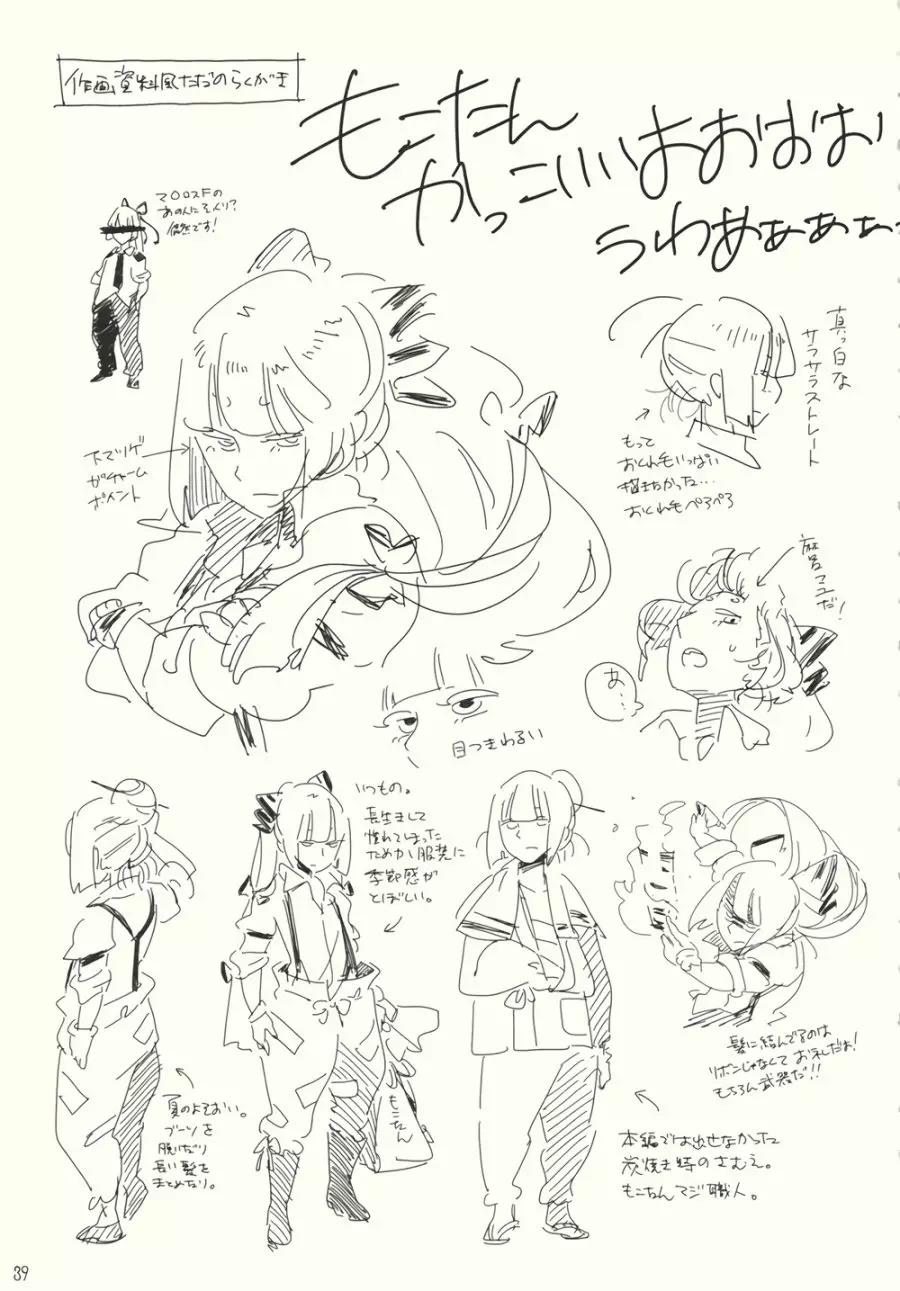 作画資料風ただのらくがき
もこたん
かっこいいおおおお
うわあぁぁぁ
マ〇ロスFの
あの人にそっくり?
偶然です!
下マツゲ
がチャーム
ポイント
真っ白な
サラサラストレート
もって
おくれ毛いっぱい
描きたかった…
おくれ毛ぺろぺろ
麿マユだ!
あ…
目つきわるい
いつもの。
長生きして
慣れてしまった
ためかい服装に
季節感が
とぼしい。
もこたん
髪に結んでるのは
リボンじゃなくてお札だよ!
もちろん武器だ!!
夏のよそおい。
ブーツを
脱いだり
長い髪を
まとめたり。
本編では出せなかった
炭焼き時のさむえ。
もこたんマジ職人。
39